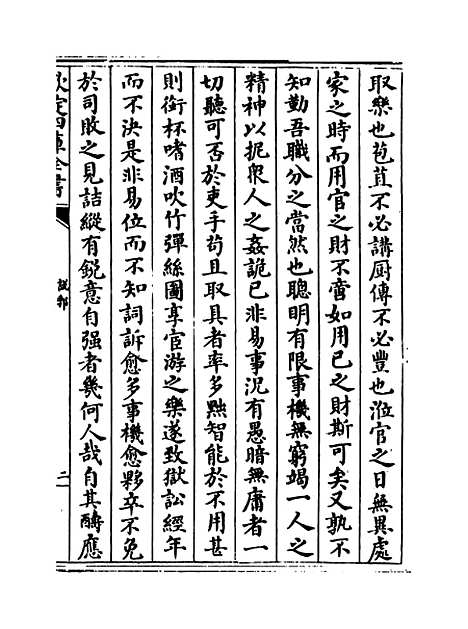 取樂也苞苴不必講厨傳不必豐也涖官之日無異處
家之時而用官之財不啻如用已之財斯可矣又孰不
知勤吾職分之當然也聰明有限事機無窮竭一人之
精神以扼衆人之姦詭已非易事況有愚暗無庸者一
切聽可否於吏手苟且取具者率多黜智能於不用甚
則銜杯嗜酒吹竹彈絲圖享宦游之樂遂致獄訟經年
而不決是非易位而不知詞訴愈多事機愈夥卒不免
於司敗之見詰縱有銳意自强者幾何人哉自其醻應
欽定四庫全書
說郛
二